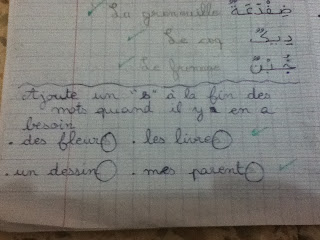 La grenouille ضِفْدَعَةٌ
Le coq دِيكٌ
Le fromage جُبْنٌ
Ajoute un "s" à la fin des
mots quand il y en a
besoin
. des fleurs . les livres
. un dessin . mes parents